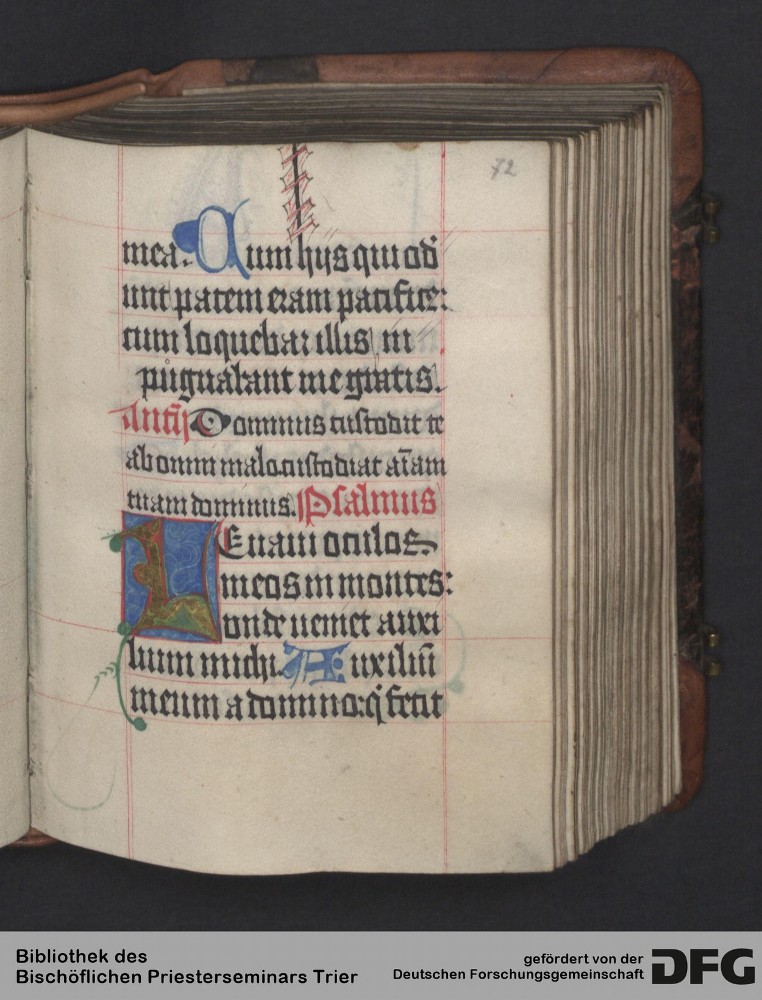 72
mea. Cum hijs qui od
unt pacem eram pacific:
cum loquebar illis in
pugnabant me gratis.
Antiph Dominus custodit te
ab omni malo custodiat aīam
tuam dominus. Psalmus
LEuaui oculos
meos in montes:
unde ueniet auxi
lium michi. Auxiliū
meum a domino: q̇ fecit
Bibliothek des
Bischöflichen Priesterseminars Trier
gefördert von der
Deutschen Forschungsgemeinschaft
DFG